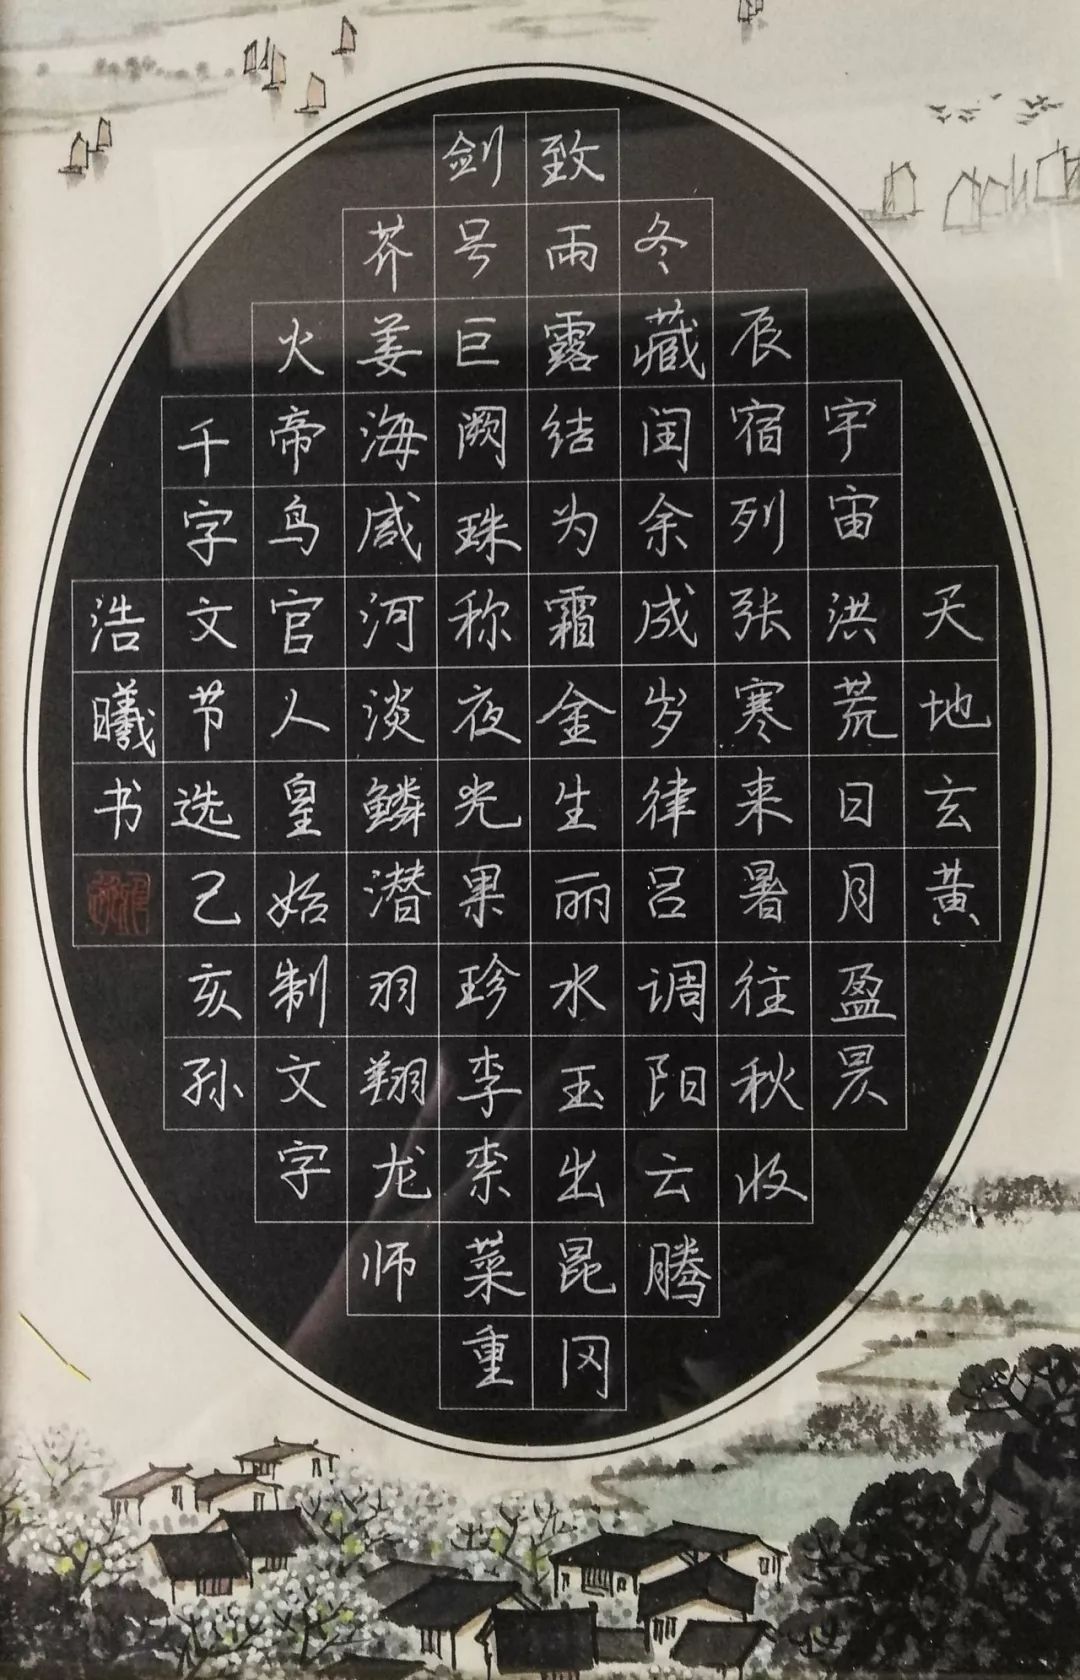 天地玄黄
宇宙洪荒日月盈昃
辰宿列张寒来暑往秋收
冬藏闰余成岁律吕调阳云腾
致雨露结为霜金生丽水玉出昆冈
剑号巨阙珠称夜光果珍李柰菜重
芥姜海咸河淡鳞潜羽翔龙师
火帝鸟官人皇始制文字
千字文节选己亥孙
浩曦书